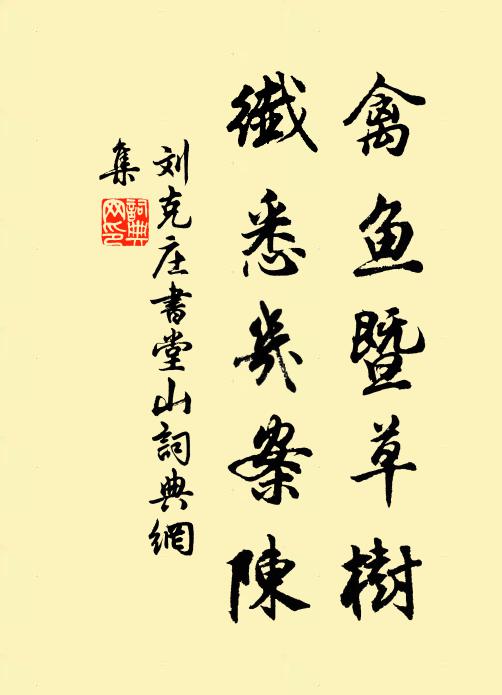 禽鱼暨草樹
纖悉幾案陳
刘克庄書堂山詞典網
集
詞典網印